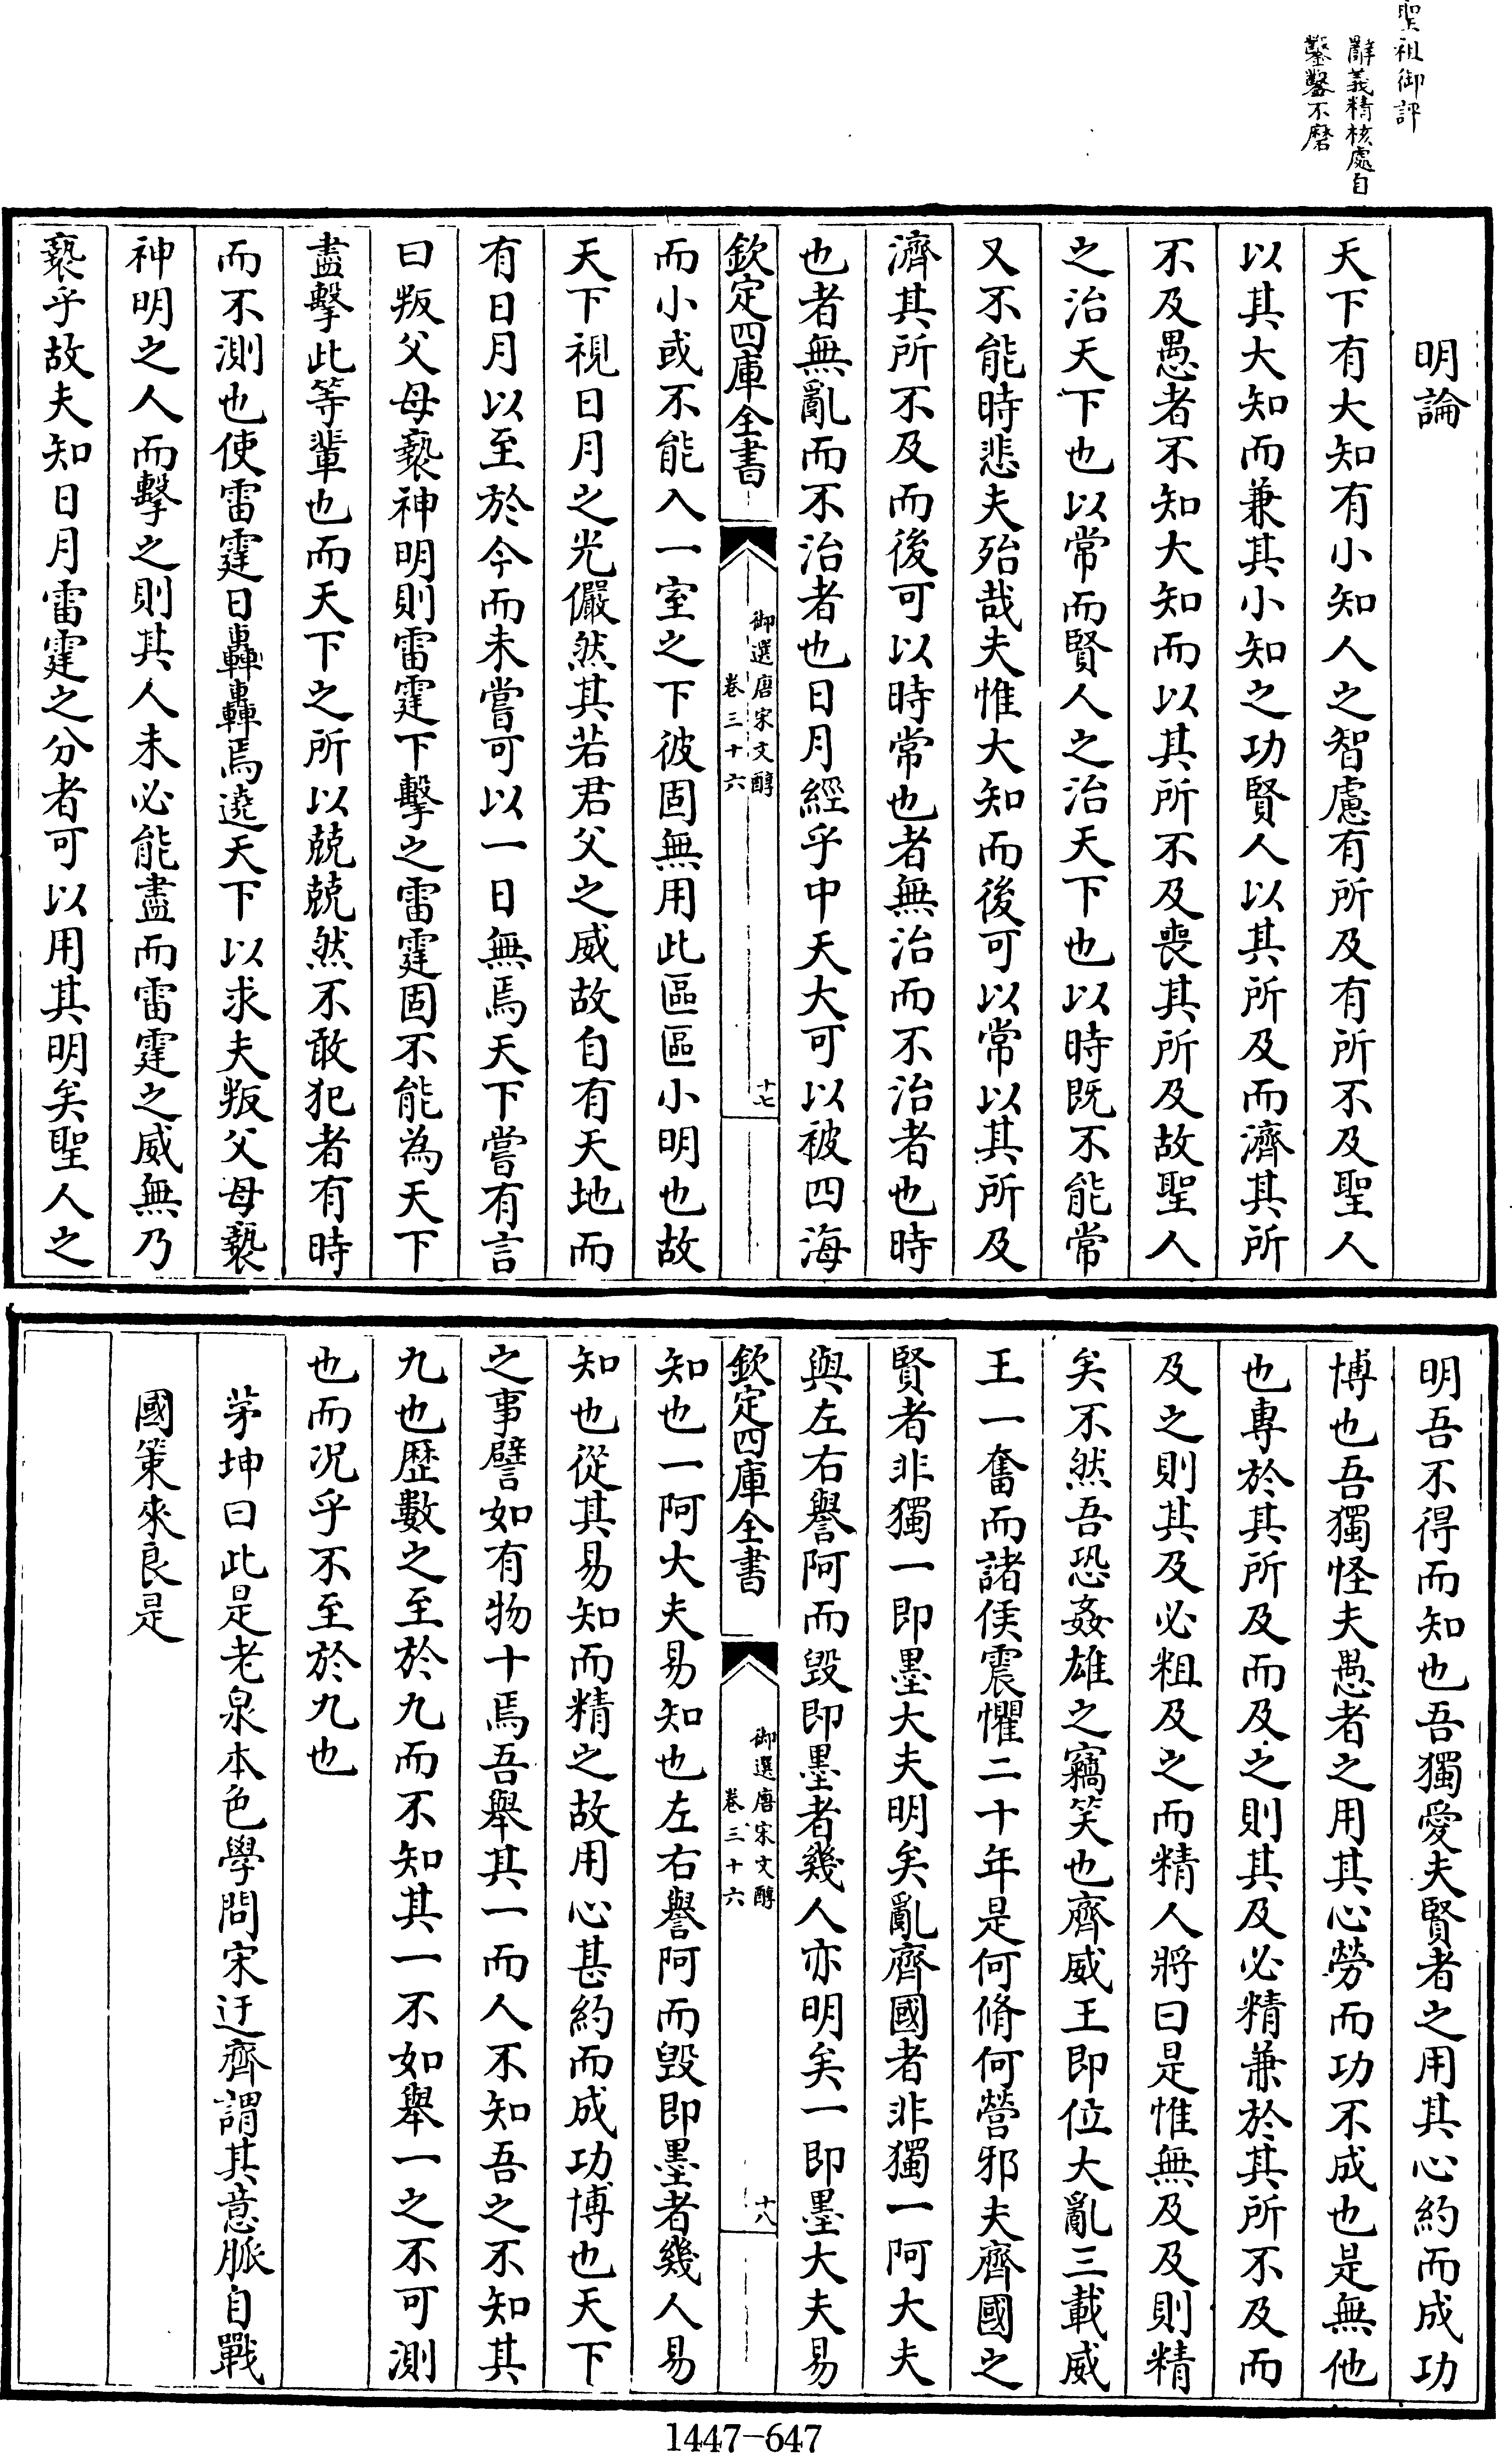 聖祖御評
辭義精核處自
鑿鑿不磨
明論
天下有大知有小知人之智慮有所及有所不及聖人
以其大知而兼其小知之功賢人以其所及而濟其所
不及愚者不知大知而以其所不及喪其所及故聖人
之治天下也以常而賢人之治天下也以時既不能常
又不能時悲夫殆哉夫惟大知而後可以常以其所及
濟其所不及而後可以時常也者無治而不治者也時
也者無亂而不治者也日月經乎中天大可以被四海
欽定四庫全書
御選唐宋文醇
卷三十六
十七
而小或不能入一室之下彼固無用此區區小明也故
天下視日月之光儼然其若君父之威故自有天地而
有日月以至於今而未嘗可以一日無焉天下嘗有言
曰叛父母褻神明則雷霆下擊之雷霆固不能為天下
盡擊此等輩也而天下之所以兢兢然不敢犯者有時
而不測也使雷霆日轟轟焉遶天下以求夫叛父母褻
神明之人而擊之則其人未必能盡而雷霆之威無乃
褻乎故夫知日月雷霆之分者可以用其明矣聖人之
明吾不得而知也吾獨愛夫賢者之用其心約而成功
博也吾獨怪夫愚者之用其心勞而功不成也是無他
也專於其所及而及之則其及必精兼於其所不及而
及之則其及必粗及之而精人將曰是惟無及及則精
矣不然吾恐姦雄之竊笑也齊威王即位大亂三載威
王一奮而諸侯震懼二十年是何脩何營邪夫齊國之
賢者非獨一即墨大夫明矣亂齊國者非獨一阿大夫
與左右譽阿而毀即墨者幾人亦明矣一即墨大夫易
欽定四庫全書
御選唐宋文醇
卷三十六
十八
知也一阿大夫易知也左右譽阿而毀即墨者幾人易
知也從其易知而精之故用心甚約而成功博也天下
之事譬如有物十焉吾舉其一而人不知吾之不知其
九也歷數之至於九而不知其一不如舉一之不可測
也而况乎不至於九也
茅坤曰此是老泉本色學問宋迂齋謂其意脈自戰
國策來良是
1447-647